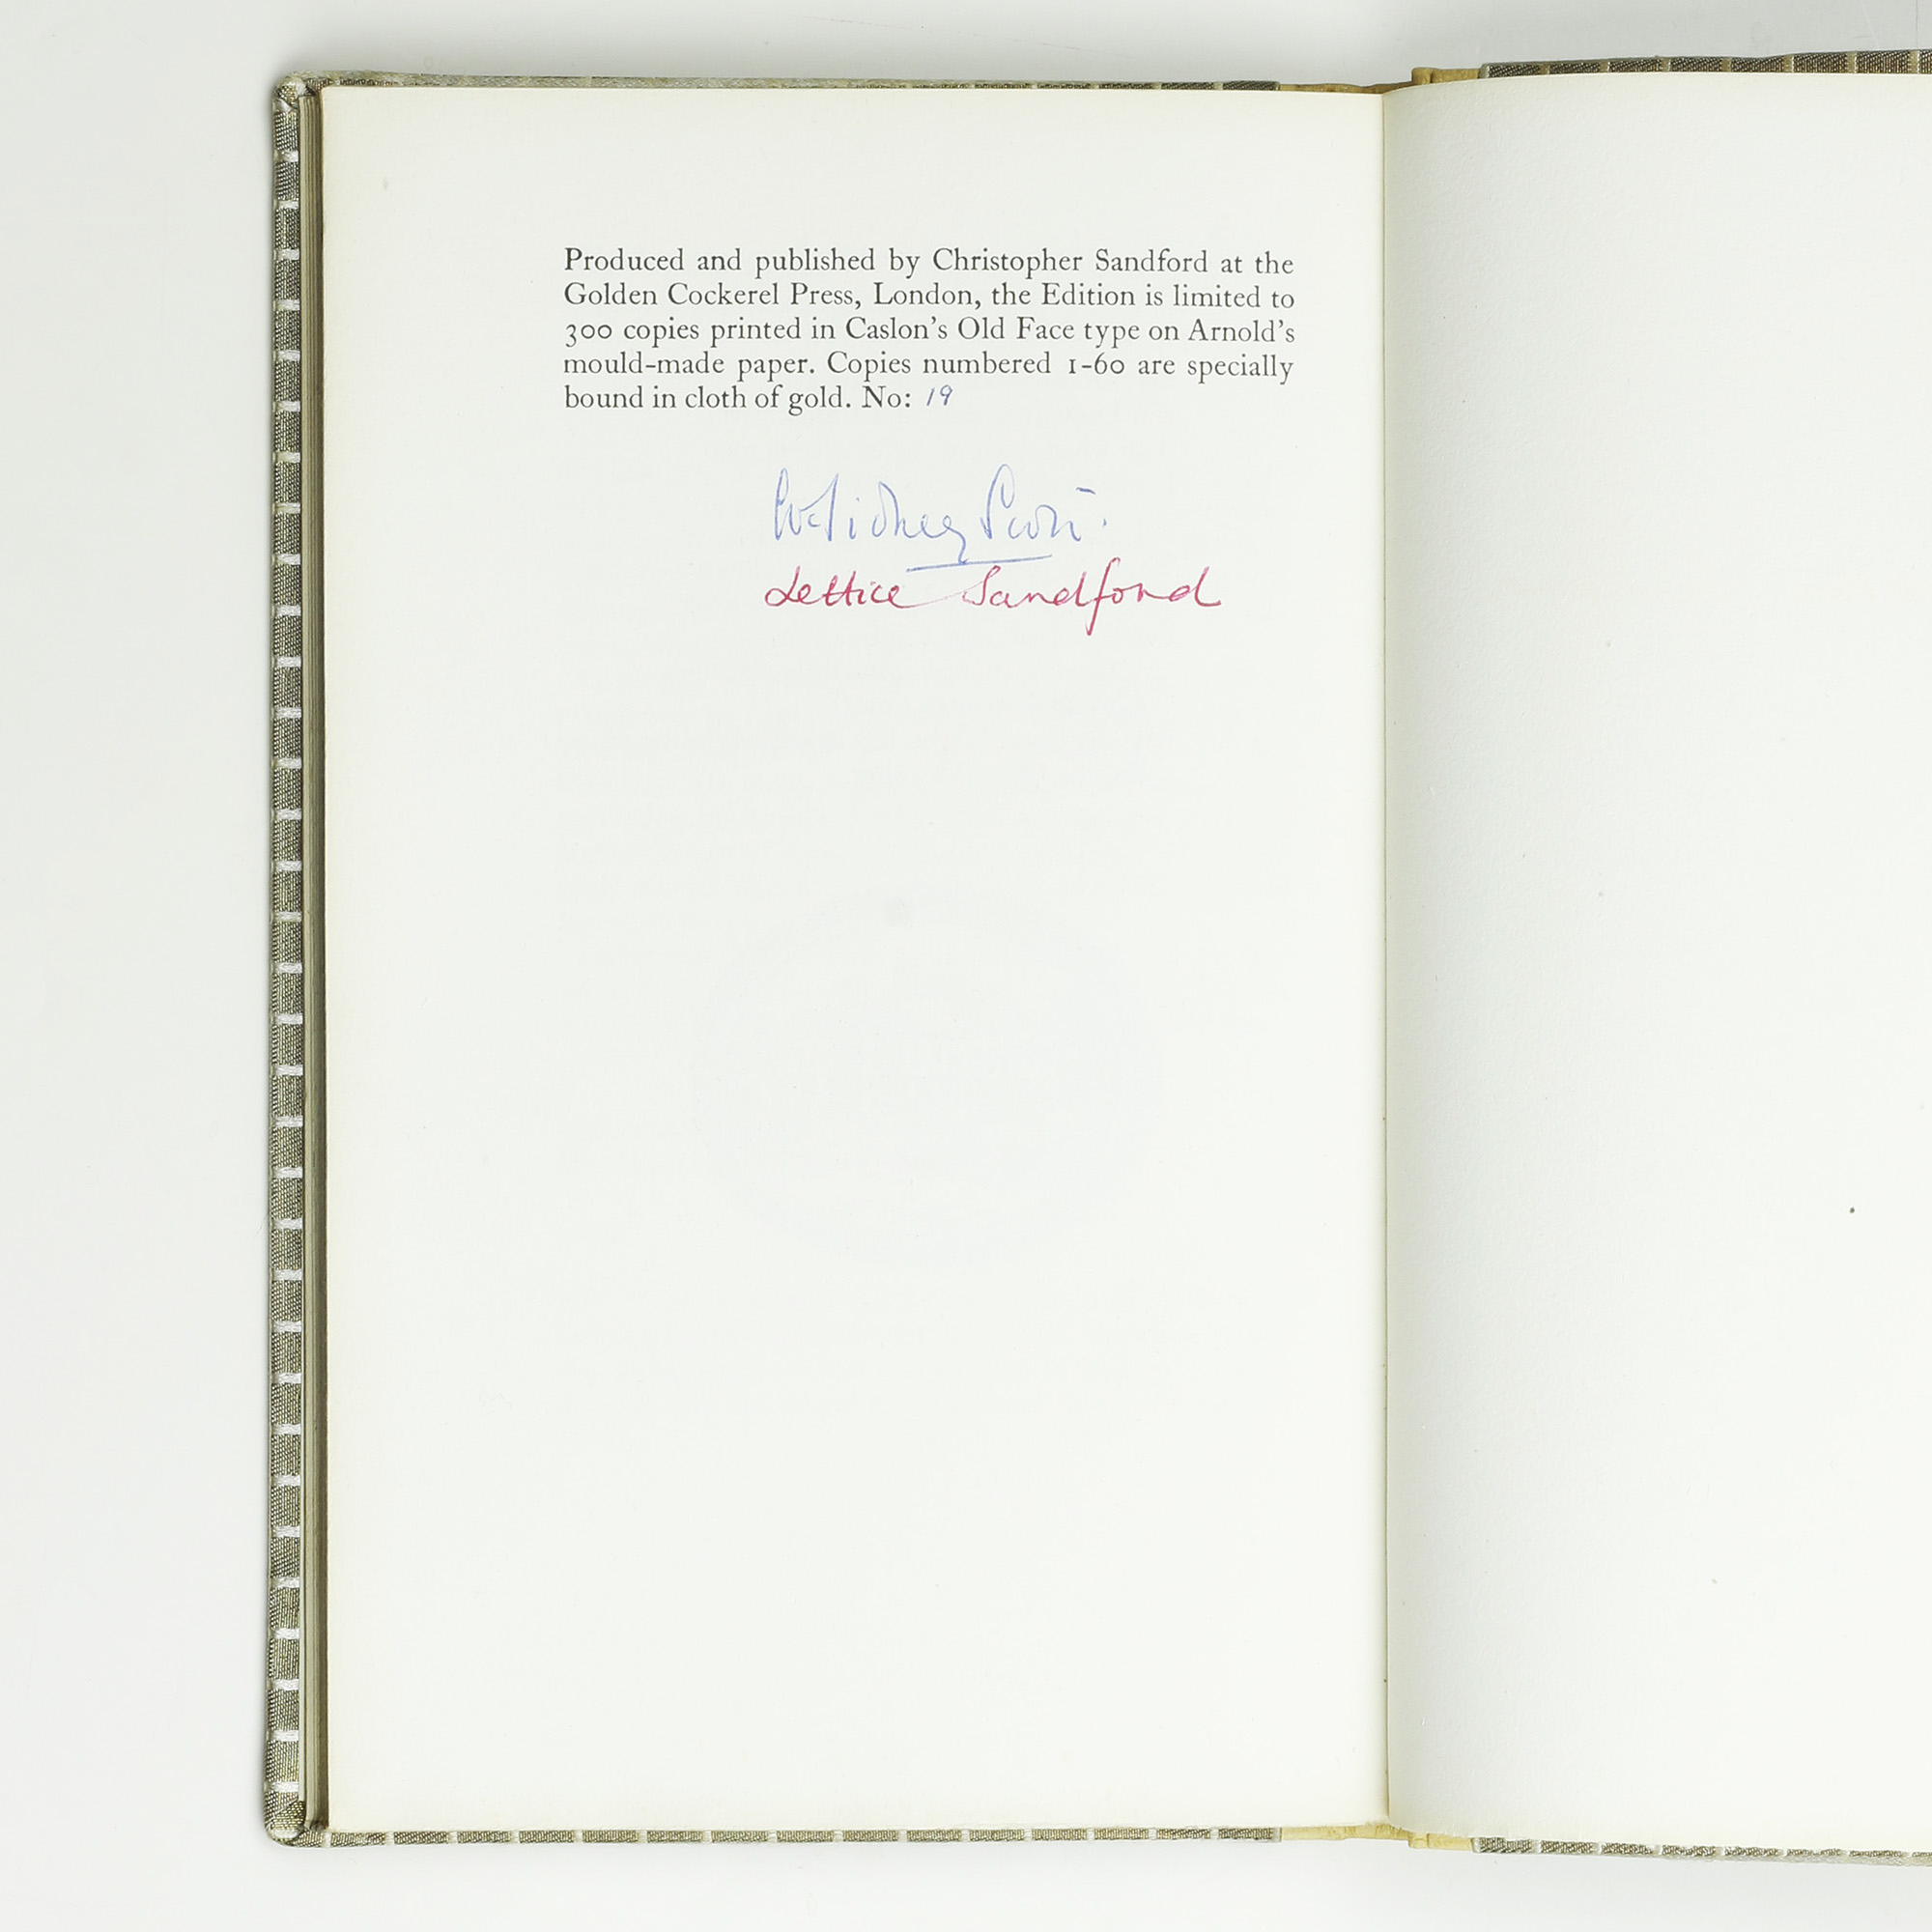 Produced and published by Christopher Sandford at the
Golden Cockerel Press, London, the Edition is limited to
300 copies printed in Caslon's Old Face type on Arnold's
mould-made paper. Copies numbered 1-60 are specially
bound in cloth of gold. No: 19
Lettice Sandford